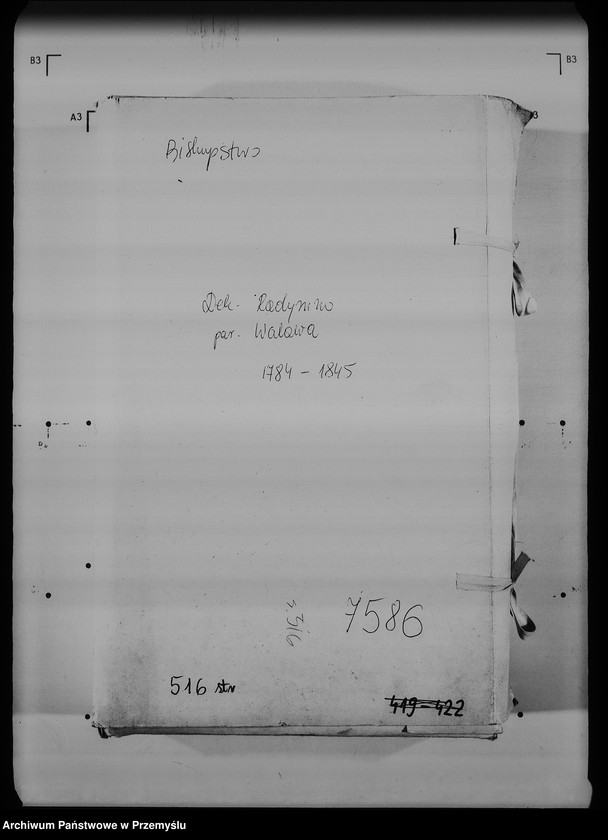 B3
B3
A3
3
Biskupstwo
Dek. Radymno
par. Walawa
1784 - 1845
7586
s. 316
516 str
419-422
Archiwum Państwowe w Przemyślu